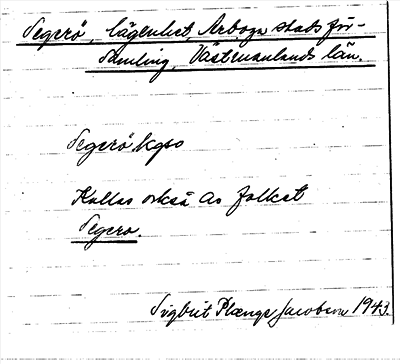 Segerö, lägenhet, Arboga stads för-
samling, Västmanlands län.
Segerö kgso
Kallas också av folket
Segero.
Sigbrit Plænge Jacobson 1943.